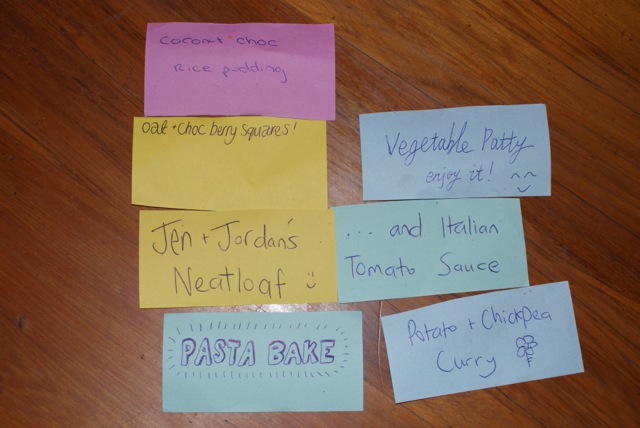 coconut choc
Rice pudding
oat + choc berry squares!
Vegetable Patty
enjoy it!
Jen + Jordan's
Neatloaf
... and Italian
Tomato Sauce
PASTA BAKE
Potato + Chickpea
Curry